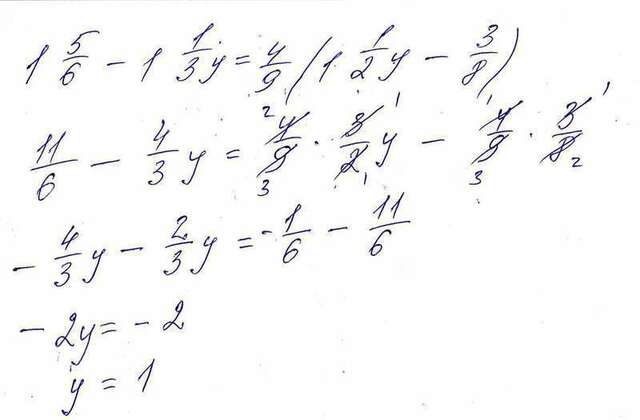 1 5/6 - 1 1/3 y = 4/9 (1 1/2 y - 3/8)
11/6 - 4/3 y = 4/9 · 3/2 y - 4/9 · 3/8
- 4/3 y - 2/3 y = - 1/6 - 11/6
- 2y = - 2
y = 1